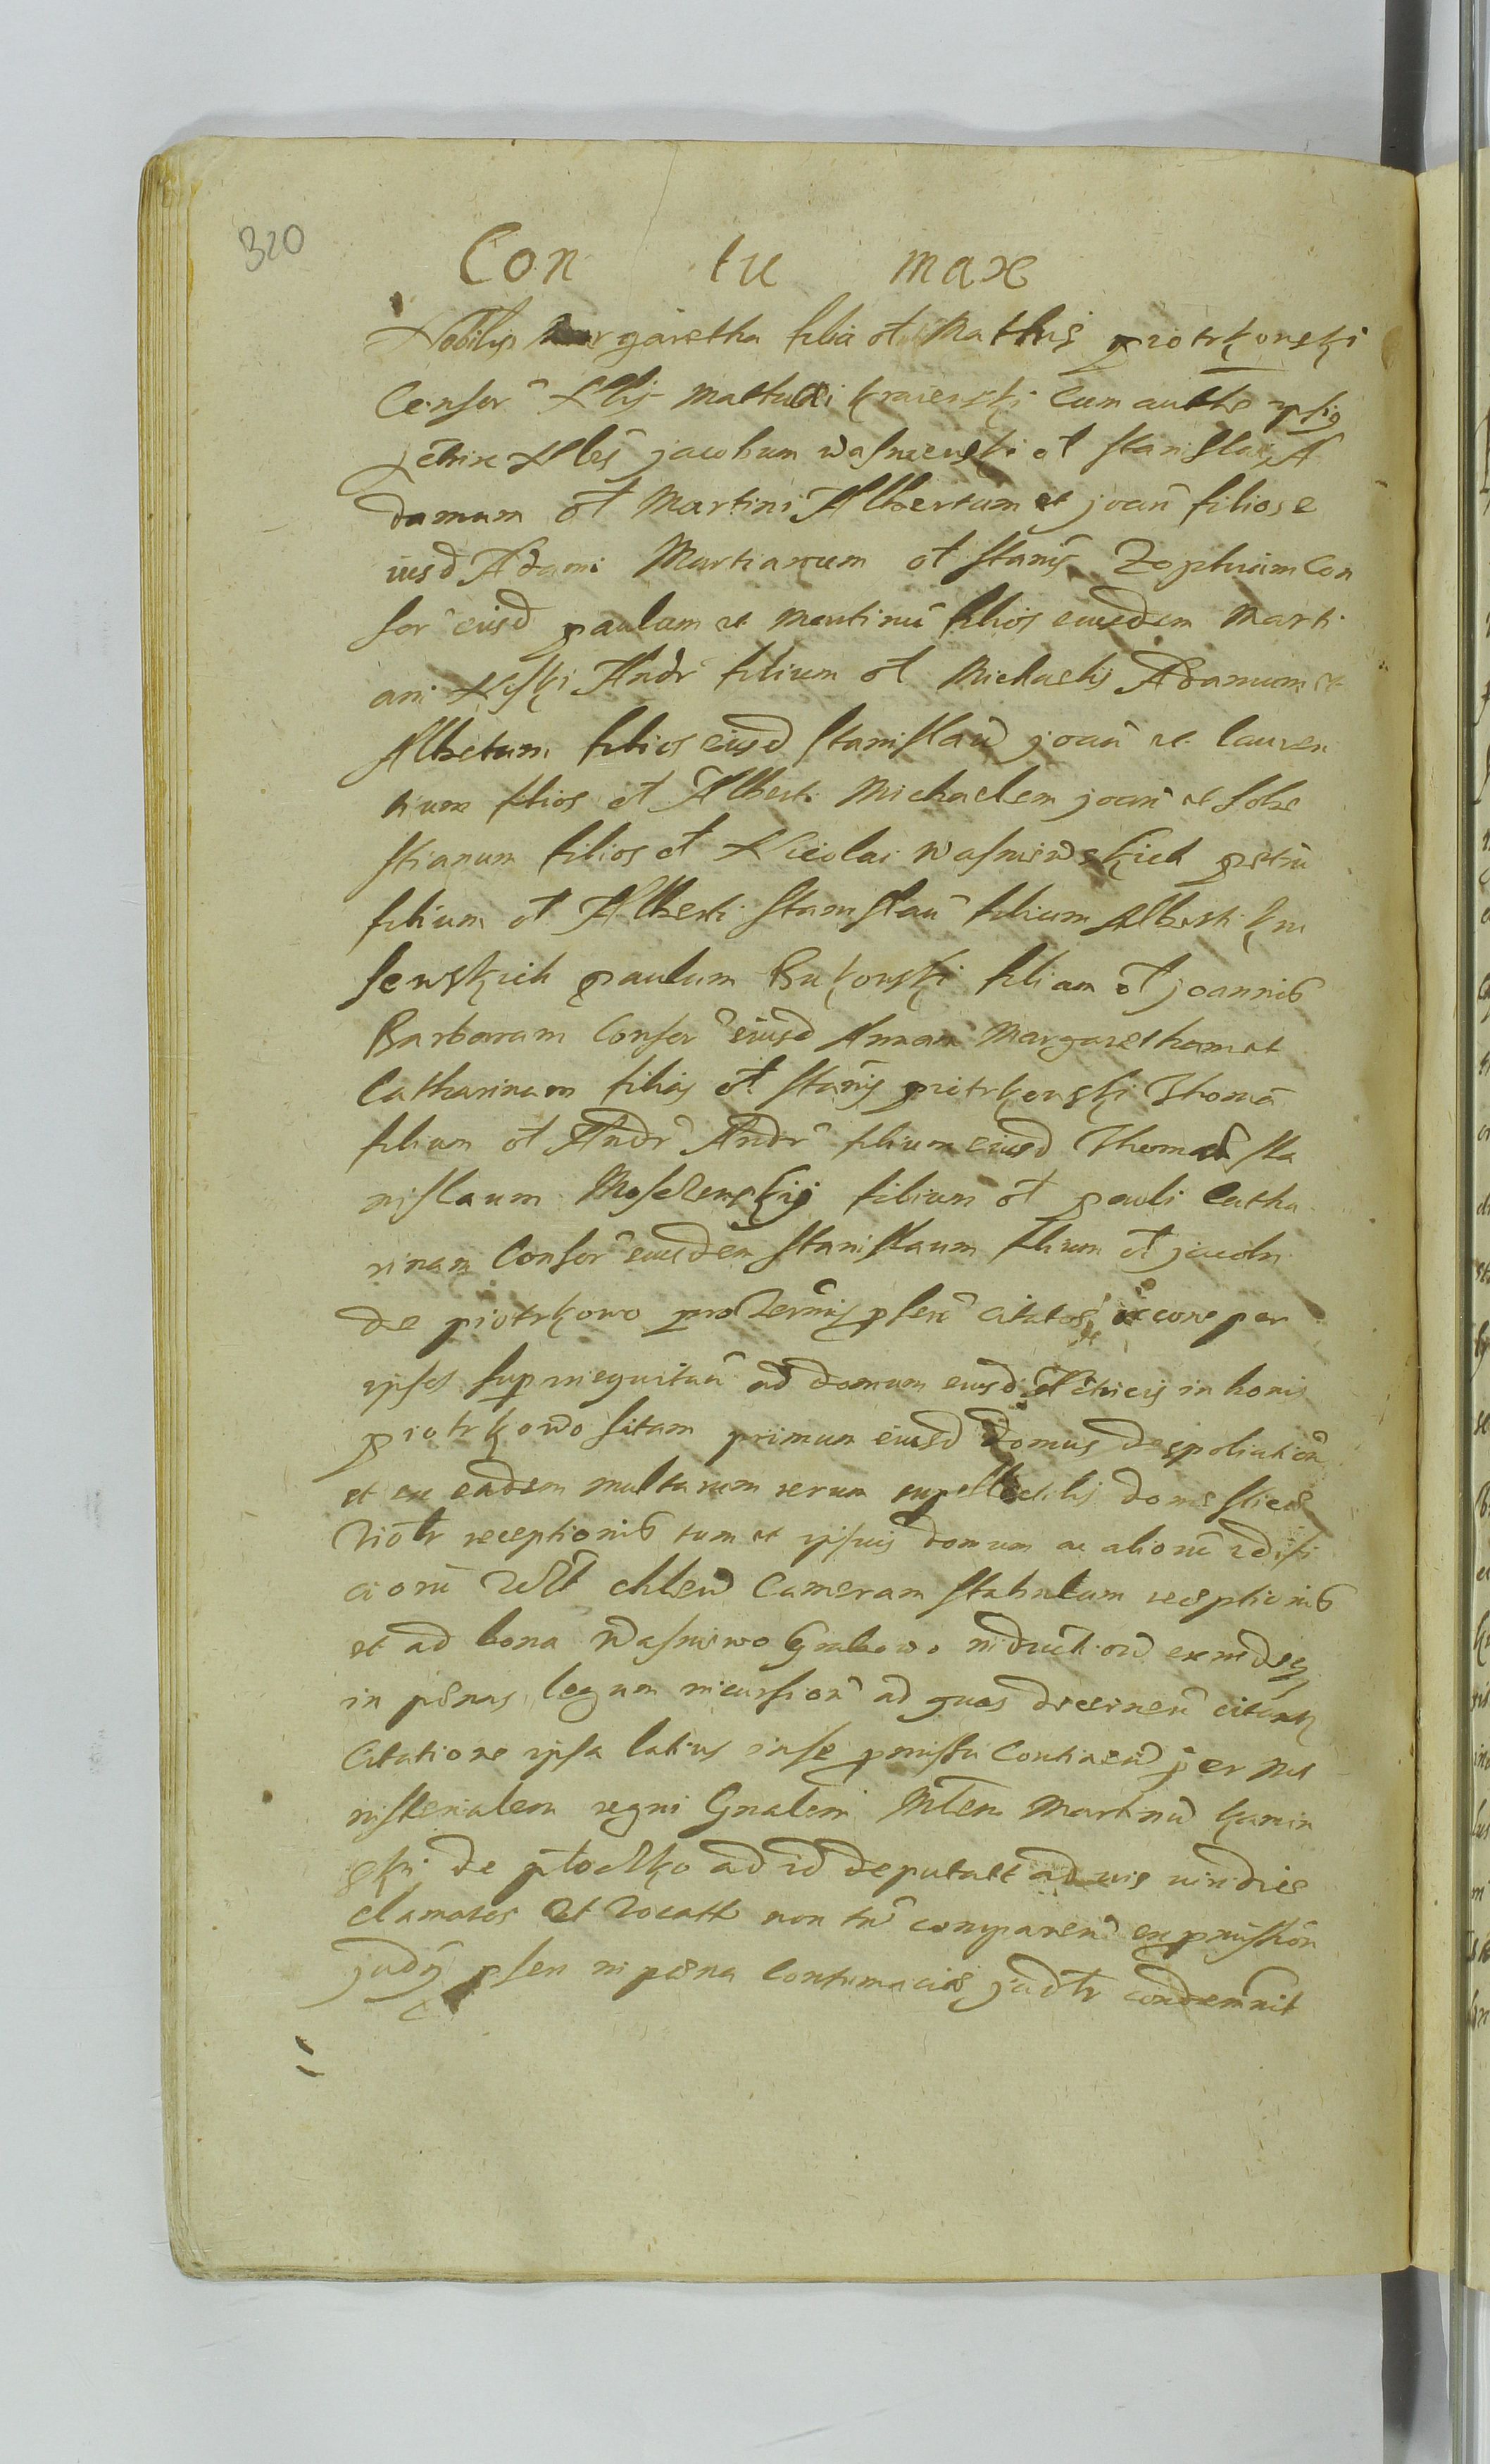 320
Con tu max
Nobilis Margaretha filia ol Mathiæ piotrkouski
Consor Nlis Matthaei kraieuski cum autho ipsiq
actrix Nbles jacobum wasnieuski ol stanislai A
damum ol Martini Albertum et joan filios e
iusd Adami Martianum ol stanis Zophiam Con
sor eiusd paulum et Martinu filios eiusdem Marti
ani Andr filium ol Michaelis Adamum et
Albertum filios eiusd stanislau joan et lauren
tium filios ol Alberti Michaelem joan et seba
stianum filios ol Nicolai wasniewskich petru
filium ol Alberti stanislau filium Alberti
sewskich paulum Bukouski filium ol joannis
Barbaram Consor eiusd Annam Margaretham et
Catharinam filias ol stanis piotrkouski Thoma
filium ol Andr Andr filium eiusd Thomae sta
nislaum filium ol pauli Catha
rinam Consor eiusdem stanislaum filium ol jacobi
de piotrkowo pro Termis psen citatos per
ipsos ad domum eiusd actricis in bonis
piotrkowo sitam primum eiusd domus despoliation
et ex eadem multarum rerum supellectilis domesticae
violtr receptionis tum et ipsius domum ac alioru ædifi
cioru chlew Cameram stabulum receptionis
et ad bona Wasniewo Grabowo
in pænas legum incursion ad quas decernen citant
Citatione ipsa latius in se pmissa Continen per Mi
nisterialem regni Gnalem Martinu kamin
ski de ptocko ad id deputatt
clamatos et vocatt non tn comparen ex pmission
judy psen in pæna Contumaciæ judtr condemnit